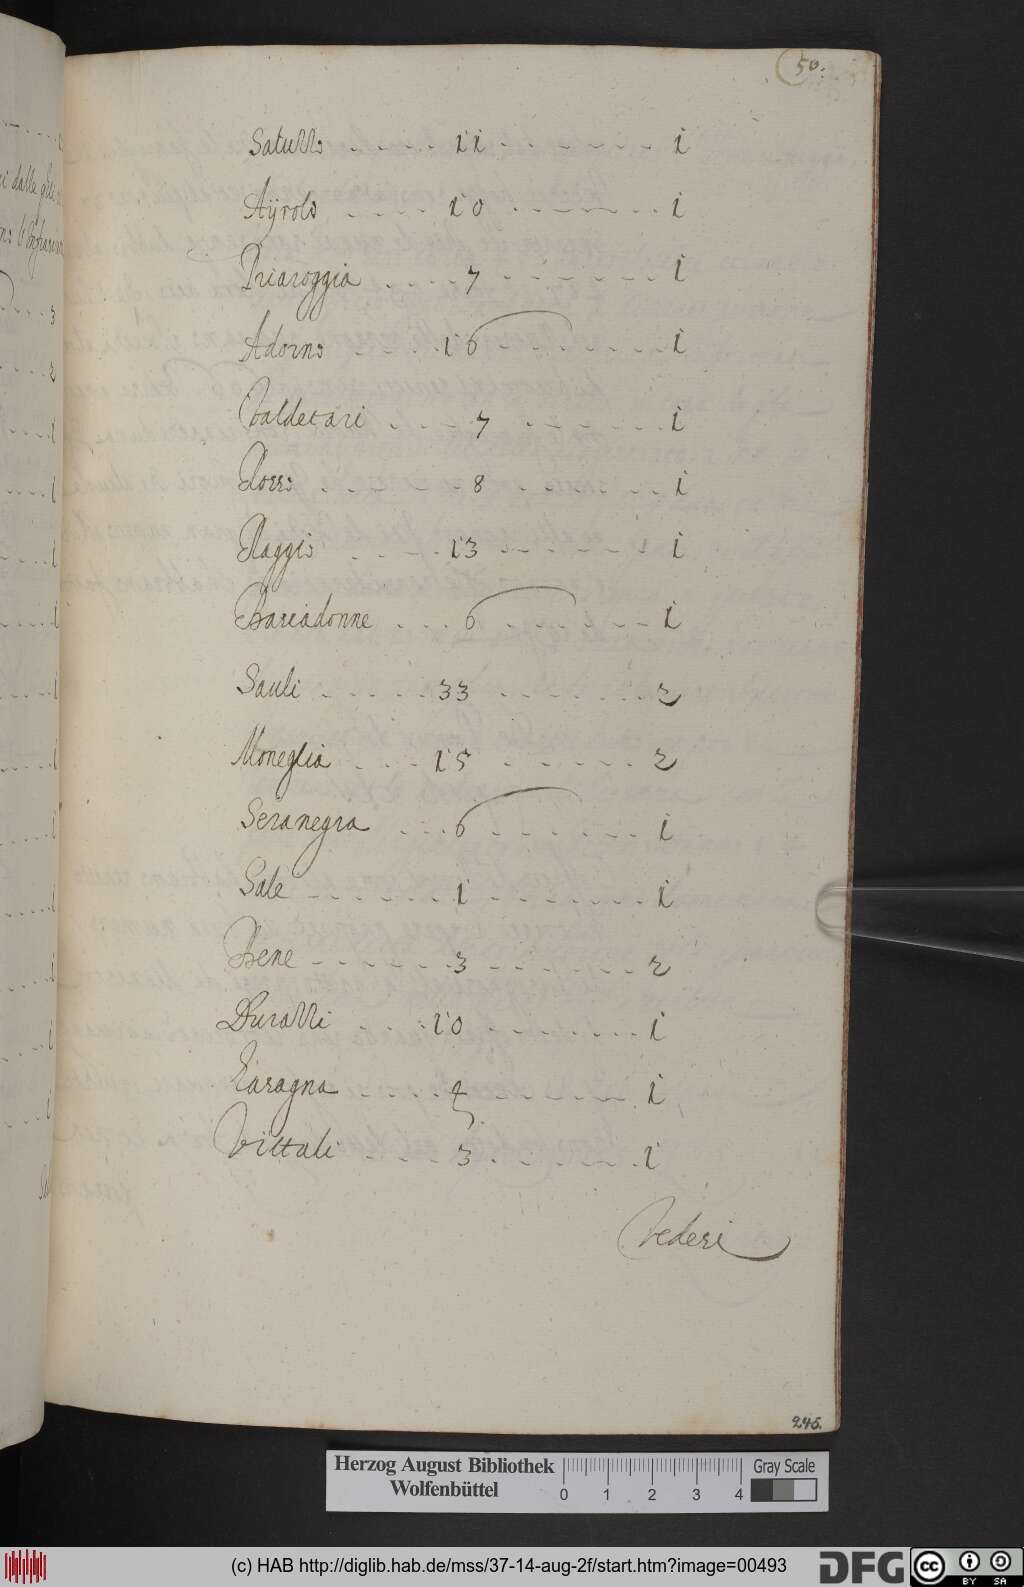 50.
Saluzzo . . . . . 11 . . . . . . . 1
Aÿrolo . . . . 10 . . . . . . 1
Priaroggia . . . . 7 . . . . . . 1
Adorno . . . . . 16 . . . . . . . 1
Valdetari . . . . 7 . . . . . . 1
Rosso . . . . . . . 8 . . . . . . 1
Raggio . . . . . 13 . . . . . . 1
Barradonne . . . . 6 . . . . . . 1
Sauli . . . . . 33 . . . . . . 2
Moneglia . . . . 15 . . . . . . 2
Seranegra . . . 6 . . . . . . 1
Sale . . . . . . 1 . . . . . . . 1
Bene . . . . . . 3 . . . . . . . 2
Durazzi . . . . 10 . . . . . . 1
Faragna . . . . 4 . . . . . . 1
Vittali . . . . 3 . . . . . . 1
Vederi
245.
Herzog August Bibliothek
Wolfenbüttel
0 1 2 3 4
Gray Scale
(c) HAB http://diglib.hab.de/mss/37-14-aug-2f/start.htm?image=00493
DFG
cc BY SA